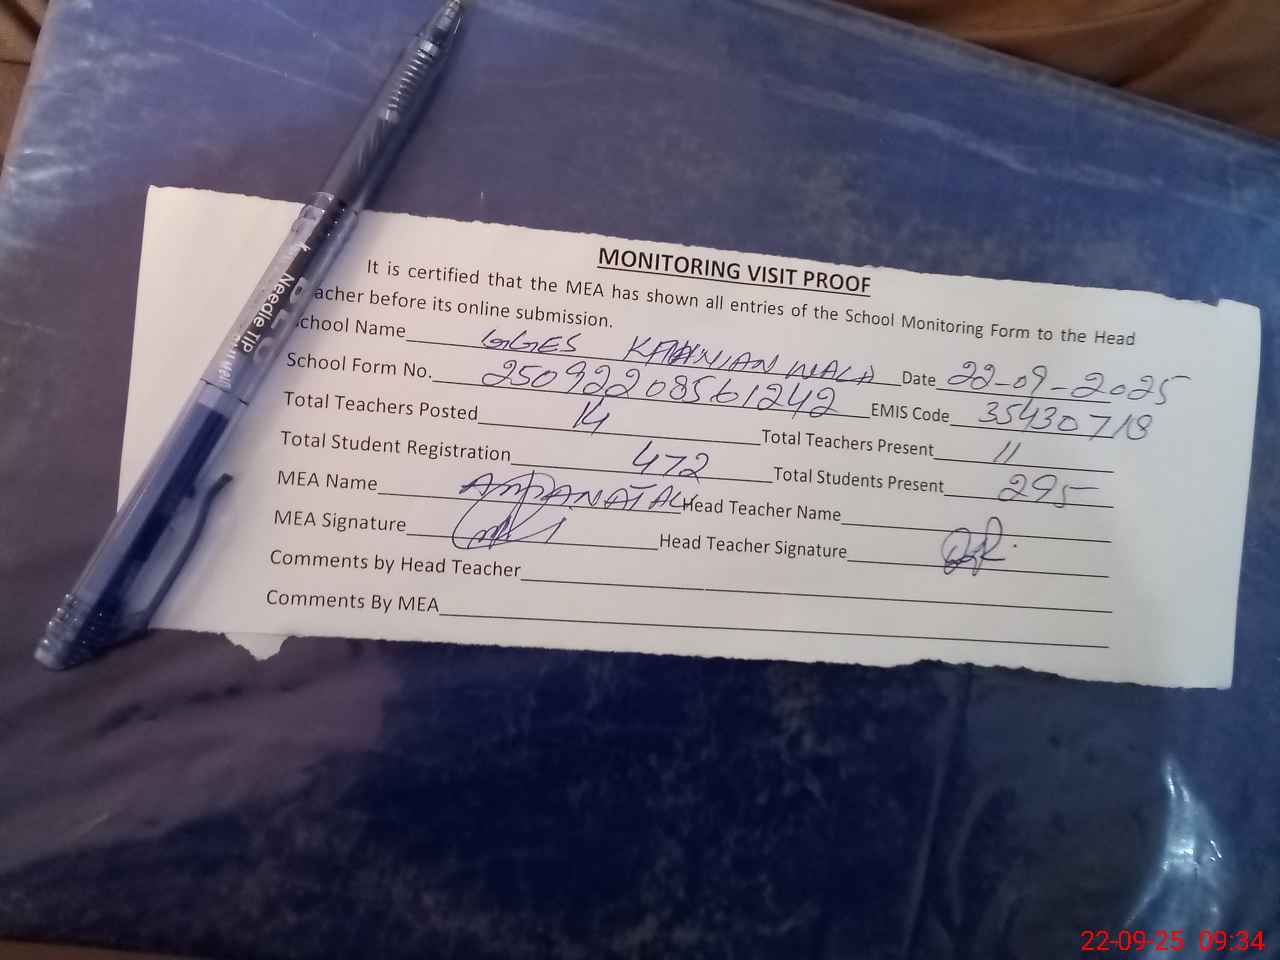 MONITORING VISIT PROOF
It is certified that the MEA has shown all entries of the School Monitoring Form to the Head
acher before its online submission.
chool Name GGES WALA Date 22-09-2025
School Form No. 25092208561242 EMIS Code 35430718
Total Teachers Posted 14 Total Teachers Present 11
Total Student Registration 472 Total Students Present 295
MEA Name Head Teacher Name
MEA Signature Head Teacher Signature
Comments by Head Teacher
Comments By MEA
Needle Tip
22-09-25 09:34